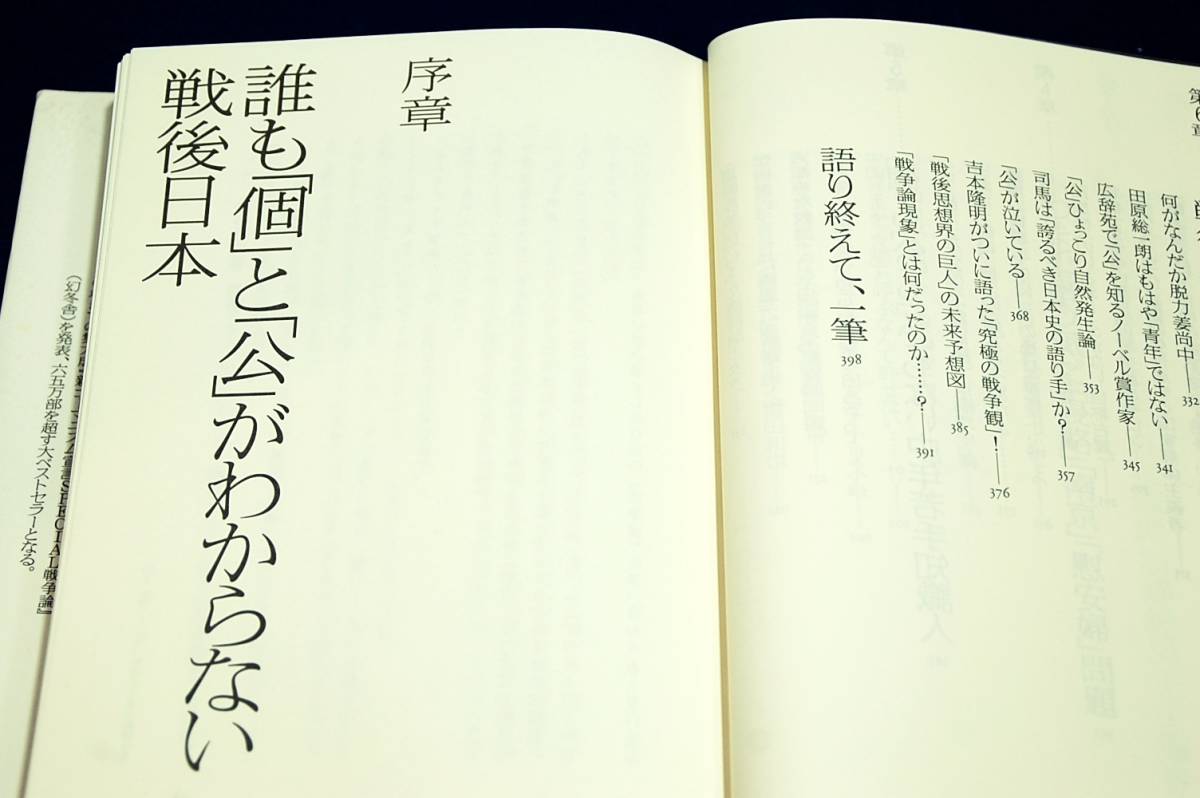 第6章
何がなんだか脱力姜尚中——332
田原総一朗はもはや「青年」ではない——341
広辞苑で「公」を知るノーベル賞作家——345
「公」ひょっこり自然発生論——353
司馬は「誇るべき日本史の語り手」か?——357
「公」が泣いている——368
吉本隆明がついに語った「究極の戦争観」!——376
「戦後思想界の巨人」の未来予想図——385
「戦争論現象」とは何だったのか……?——391
語り終えて、一筆 398
序章
誰も「個」と「公」がわからない
戦後日本
SPECIAL戦争論』
(幻冬舎)を発表、六五万部を超す大ベストセラーとなる。